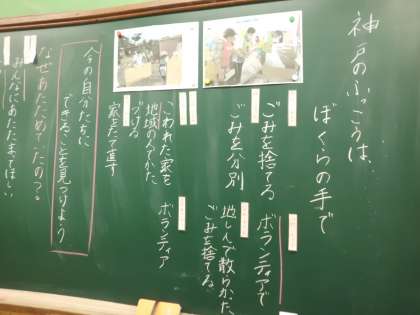 神戸のふっこうは、
ぼくらの手で
ごみを捨てる
ボランティアで
ごみを分別
地しんで散らかった
ごみを捨てる。
こわれた家を
地域の人でかた
づける
ボランティア
家をたて直す
今の自分たちに
できることを見つけよう
なぜあたためていたのか
みんなにあたたまてほしい